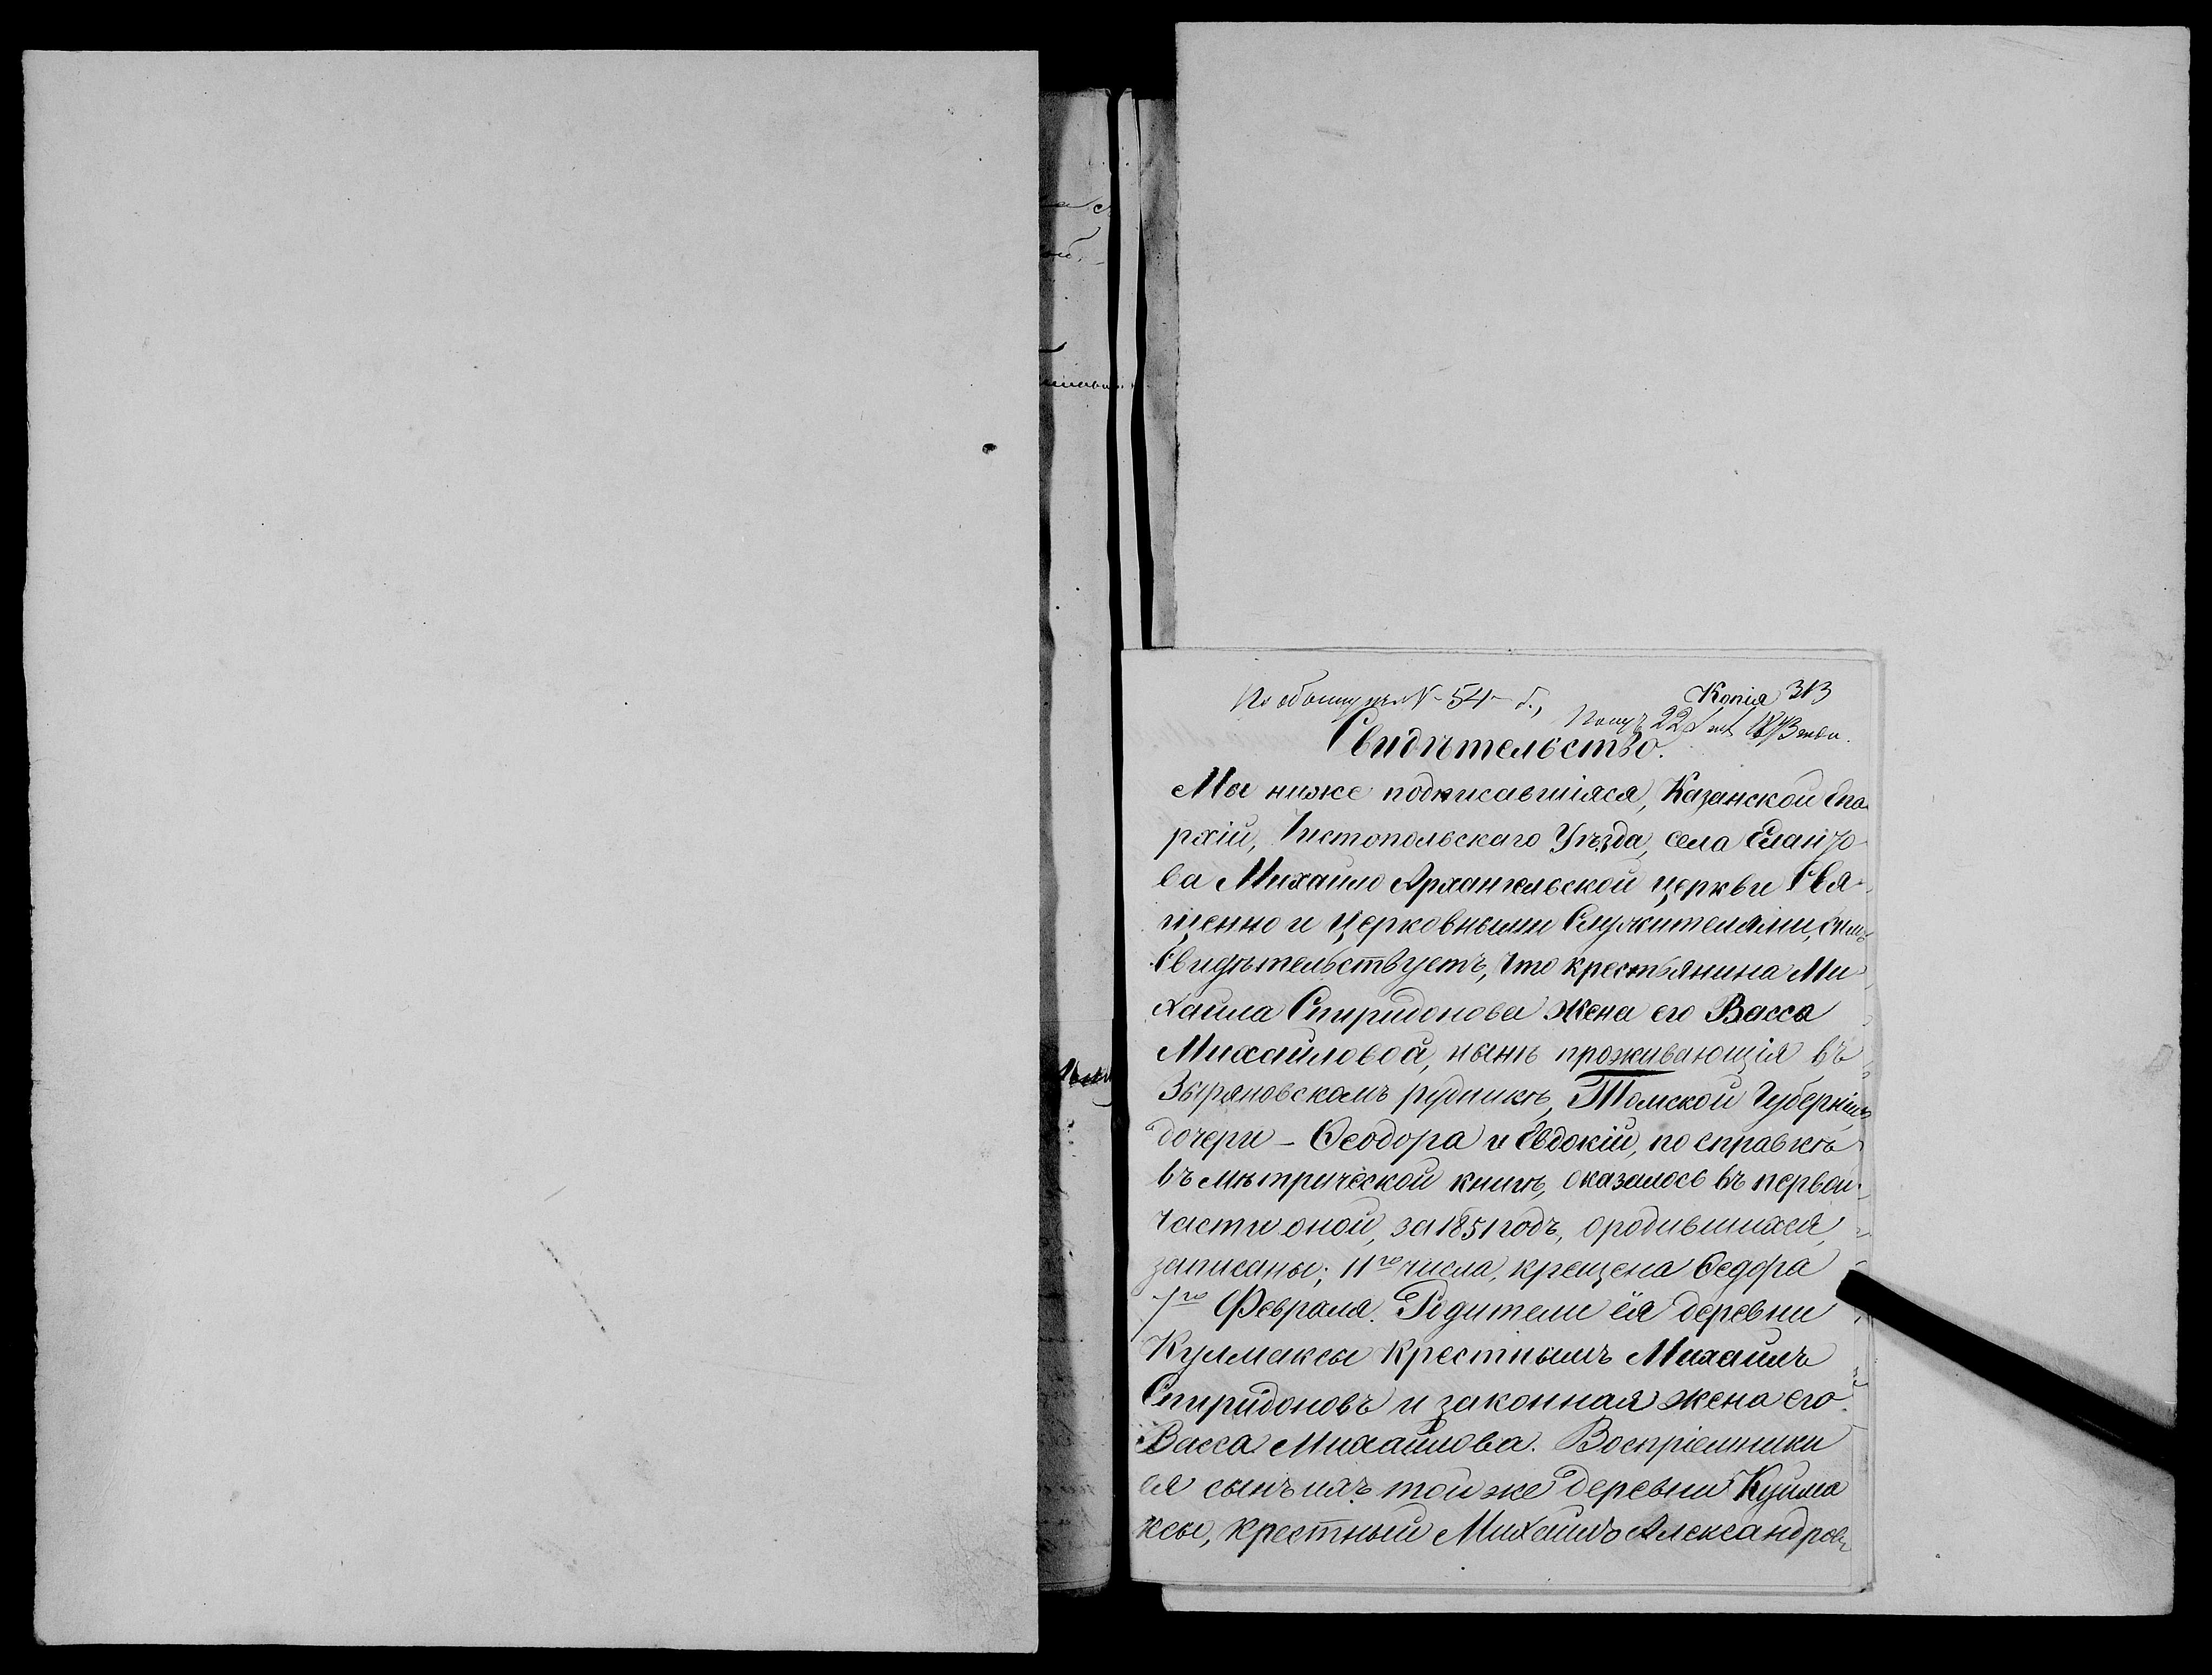 Копія 313
По обыску къ № 54
Получ. 22 1873 года.
Свидѣтельство.
Мы ниже подписавшіяся, Казанской Епа
рхіи, Чистопольскаго Уѣзда, села Еланто
ва Михаило Архангельской церкви Свя
щенно и Церковными Служителями, симъ
Свидѣтельствуетъ, что крестьянина Ми
хаила Спиридонова жена его Васса
Михайловой, нынѣ проживающія въ
Зыряновскомъ рудникѣ, Томской Губерніи,
дочери - Ѳеодора и Евдокіи, по справкѣ
въ мѣтрической книгѣ, оказалось въ первой
части оной, за 1851 годъ, о родившихся,
записаны; 11го числа, крещена Ѳедора
7го Февраля. Родители ёя деревни
Кулмаксы Крестнымъ Михаилъ
Спиридоновъ и законная жена его
Васса Михайлова. Воспріемники
ея сынъ ихъ той же деревни Кулма
ксы, крестный Михаилъ Александровъ